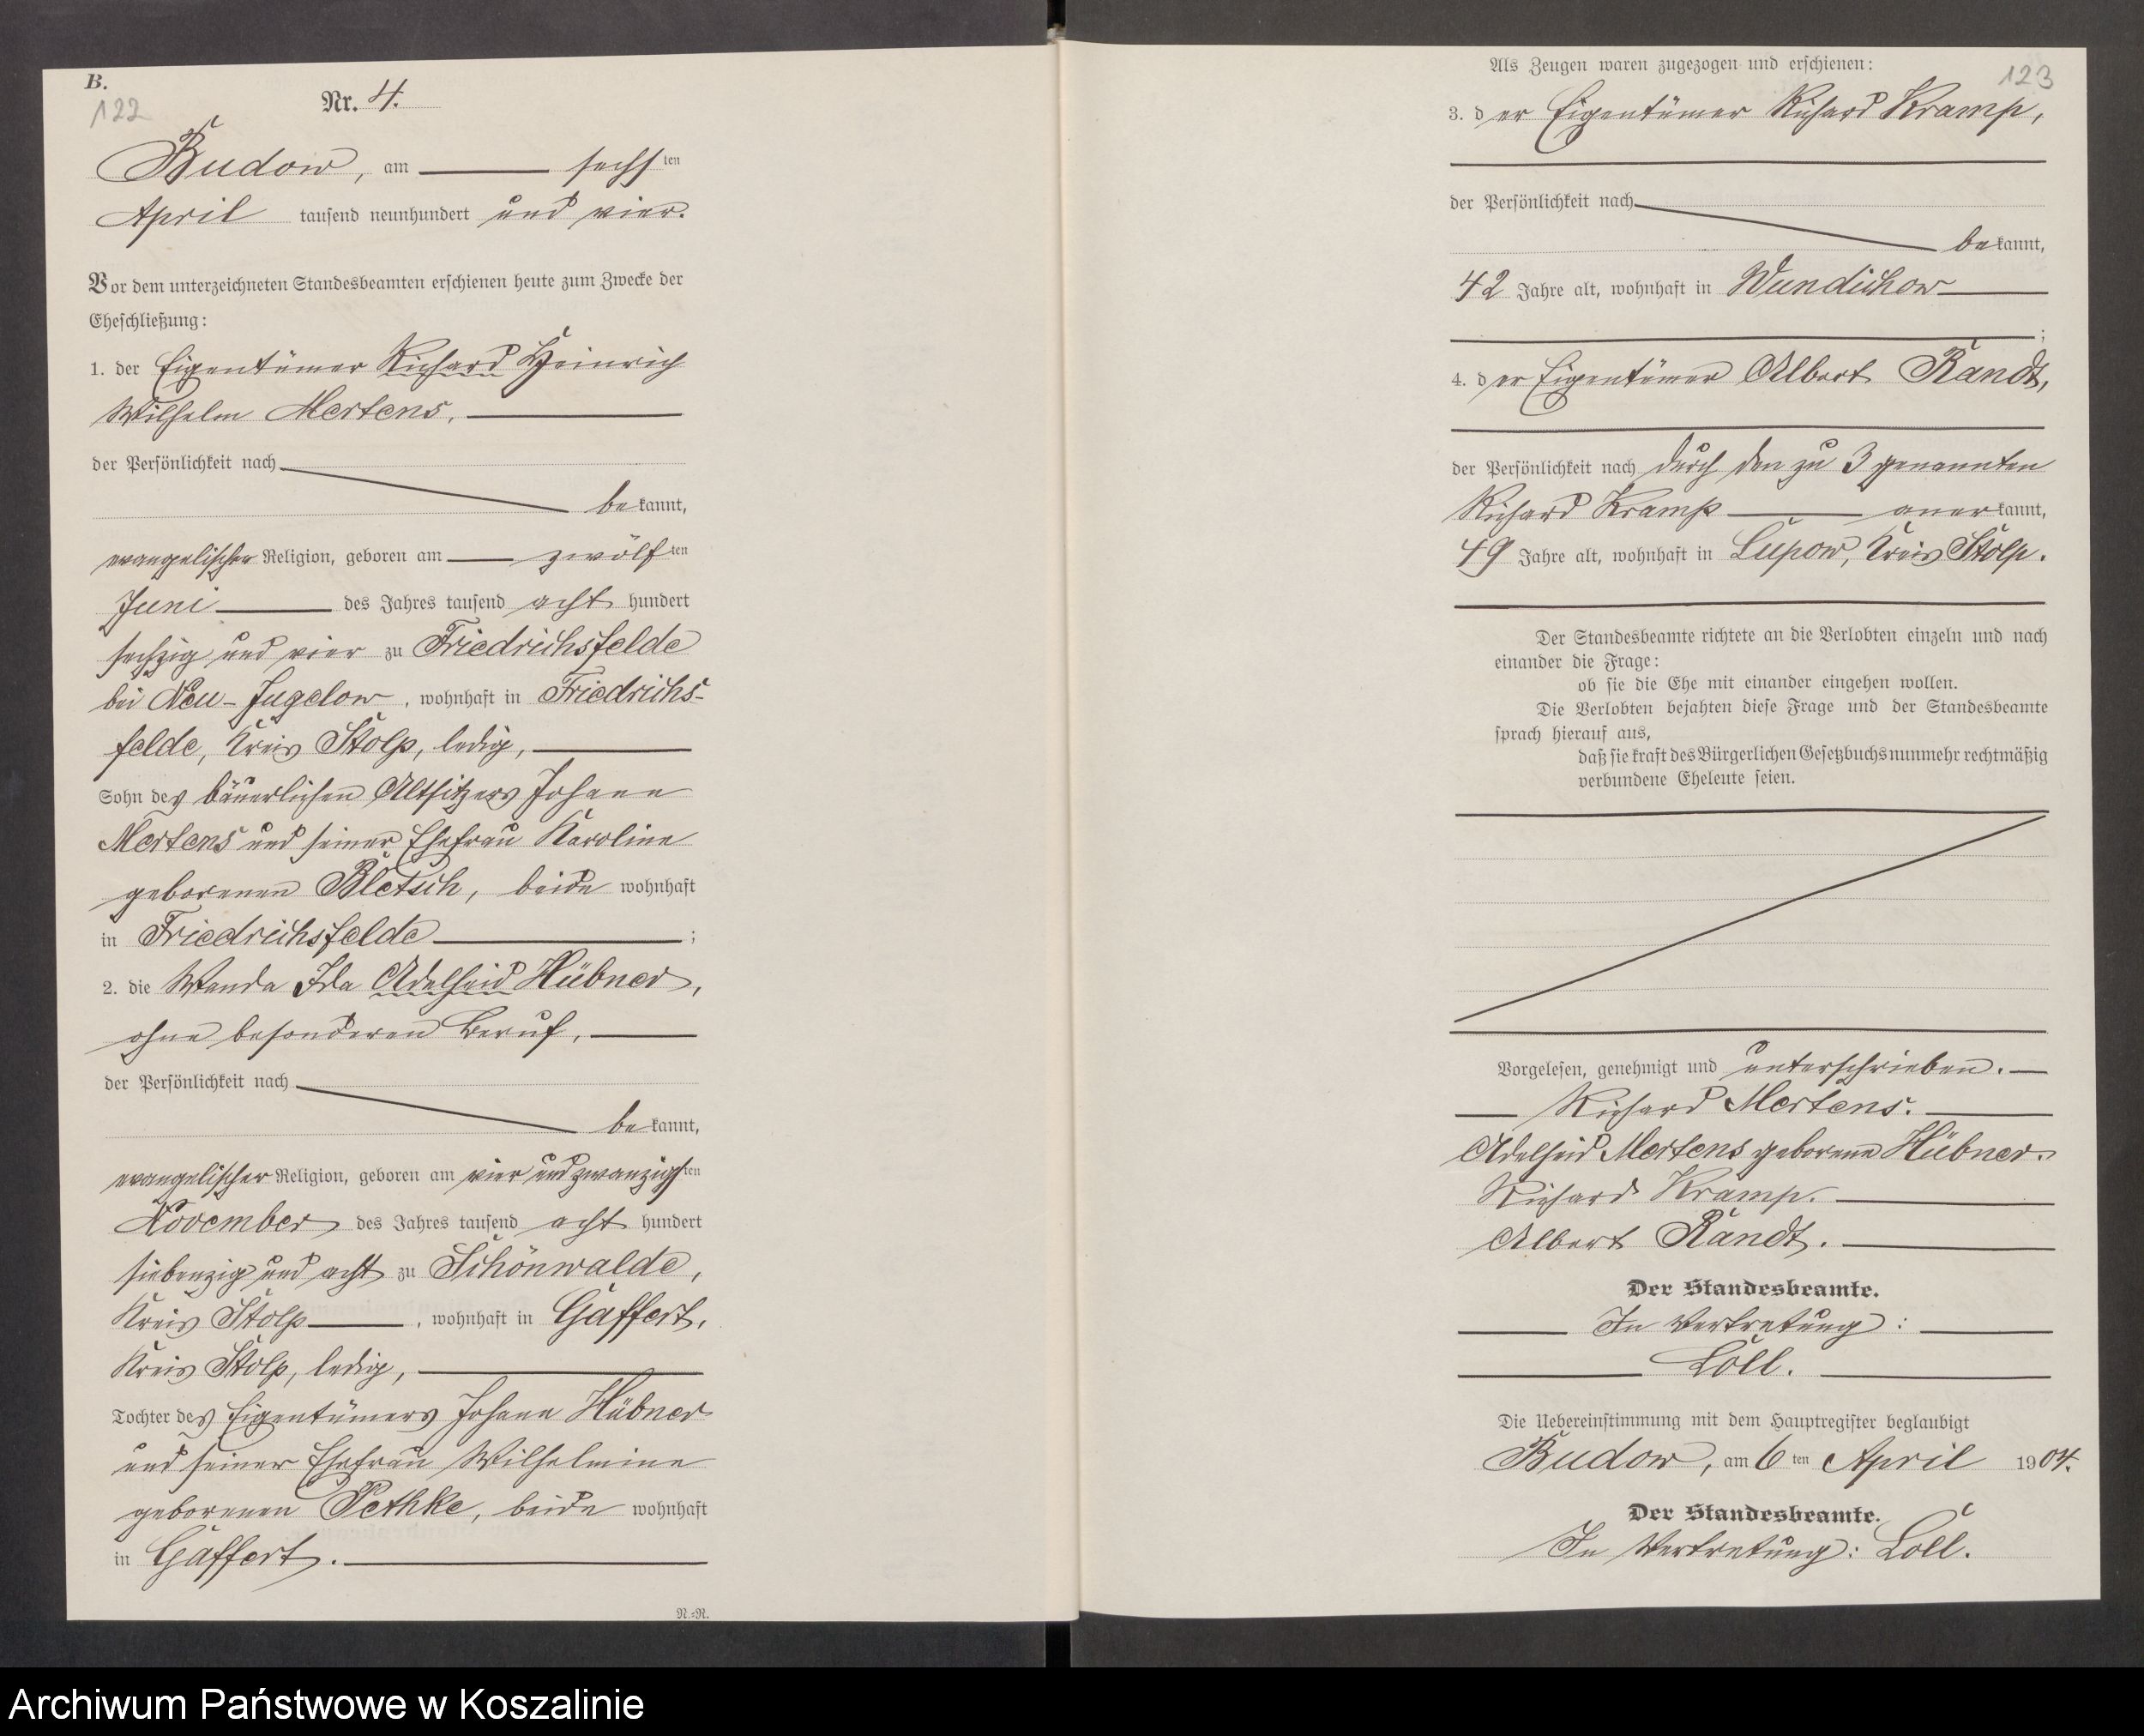 B.
122
Nr. 4.
Budow, am sechsten
April tausend neunhundert und vier.
Vor dem unterzeichneten Standesbeamten erschienen heute zum Zwecke der
Eheschließung:
1. der Eigentümer Richard Heinrich
Wilhelm Mertens,
der Persönlichkeit nach
bekannt,
evangelischer Religion, geboren am zwölften
Juni des Jahres tausend acht hundert
sechzig und vier zu Friedrichsfelde
bei Neu-Jugelow, wohnhaft in Friedrichs-
felde, Kreis Stolp, ledig,
Sohn des bäuerlichen Altsitzers Johann
Mertens und seiner Ehefrau Karoline
geborenen Bletsch, beide wohnhaft
in Friedrichsfelde ;
2. die Wanda Ida Adelheid Hübner,
ohne besonderen Beruf,
der Persönlichkeit nach
bekannt,
evangelischer Religion, geboren am vier und zwanzigsten
November des Jahres tausend acht hundert
siebenzig und acht zu Schönwalde,
Kreis Stolp, wohnhaft in Gaffert,
Kreis Stolp, ledig,
Tochter des Eigentümers Johann Hübner
und seiner Ehefrau Wilhelmine
geborenen Pethke, beide wohnhaft
in Gaffert.
N.-R.
123
Als Zeugen waren zugezogen und erschienen:
3. der Eigentümer Richard Kramp,
der Persönlichkeit nach
bekannt,
42 Jahre alt, wohnhaft in Wundichow
;
4. der Eigentümer Albert Randt,
der Persönlichkeit nach durch den zu 3 genannten
Richard Kramp anerkannt,
49 Jahre alt, wohnhaft in Lupow, Kreis Stolp.
Der Standesbeamte richtete an die Verlobten einzeln und nach
einander die Frage:
ob sie die Ehe mit einander eingehen wollen.
Die Verlobten bejahten diese Frage und der Standesbeamte
sprach hierauf aus,
daß sie kraft des Bürgerlichen Gesetzbuchs nunmehr rechtmäßig
verbundene Eheleute seien.
Vorgelesen, genehmigt und unterschrieben.
Richard Mertens.
Adelheid Mertens geborene Hübner.
Richard Kramp.
Albert Randt.
Der Standesbeamte.
In Vertretung:
Loll.
Die Uebereinstimmung mit dem Hauptregister beglaubigt
Budow, am 6ten April 1904.
Der Standesbeamte.
In Vertretung: Loll.
Archiwum Państwowe w Koszalinie